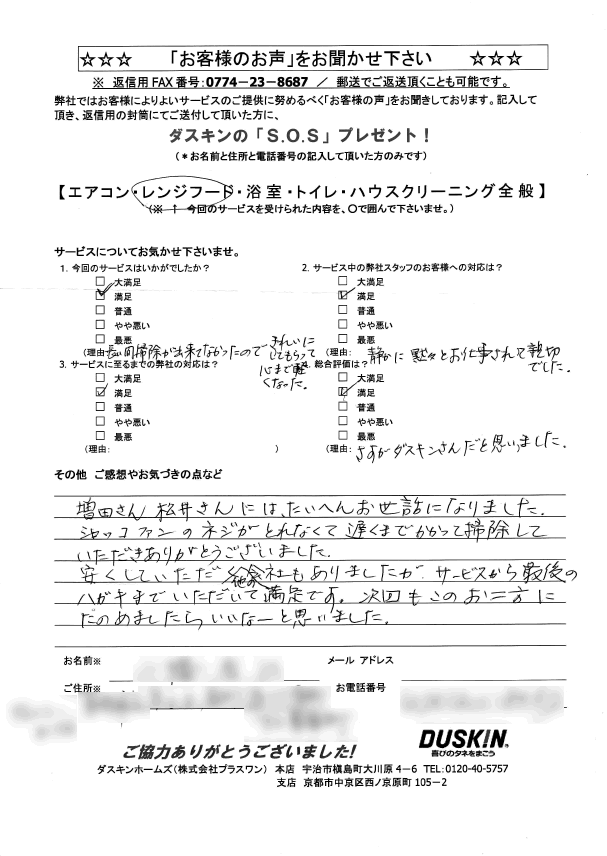 ☆☆☆ 「お客様のお声」をお聞かせ下さい ☆☆☆
※ 返信用FAX番号：0774－23－8687 ／ 郵送でご返送頂くことも可能です。
弊社ではお客様によりよいサービスのご提供に努めるべく「お客様の声」をお聞きしております。記入して
頂き、返信用の封筒にてご送付して頂いた方に、
ダスキンの「S.O.S」プレゼント！
（＊お名前と住所と電話番号の記入して頂いた方のみです）
【エアコン・レンジフード・浴室・トイレ・ハウスクリーニング全般】
（※ ↑ 今回のサービスを受けられた内容を、〇で囲んで下さいませ。）
サービスについてお気かせ下さいませ。
1. 今回のサービスはいかがでしたか？
□ 大満足
☑ 満足
□ 普通
□ やや悪い
□ 最悪
（理由 長い間掃除が出来てなかったので きれいに
してもらって
心まで軽
くなった。
2. サービス中の弊社スタッフのお客様への対応は？
□ 大満足
☑ 満足
□ 普通
□ やや悪い
□ 最悪
（理由: 静かに 黙々とお仕事されて 親切
でした。
3. サービスに至るまでの弊社の対応は？
□ 大満足
☑ 満足
□ 普通
□ やや悪い
□ 最悪
（理由: ）
4. 総合評価は？
□ 大満足
☑ 満足
□ 普通
□ やや悪い
□ 最悪
（理由: さすがダスキンさんだと思いました。
その他 ご感想やお気づきの点など
増田さん 松井さんには、たいへんお世話になりました。
シロッコファンのネジがとれなくて遅くまでかかって掃除して
いただきありがとうございました。
安くしていただ 他の会社もありましたが、サービスから最後の
ハガキまでいただいて満足です。次回もこのお二方に
たのめましたらいいなーと思いました。
お名前※
メール アドレス
ご住所※
お電話番号
ご協力ありがとうございました!
DUSKIN
喜びのタネをまこう
ダスキンホームズ（株式会社プラスワン） 本店 宇治市槇島町大川原４－６ TEL：0120-40-5757
支店 京都市中京区西ノ京原町１０５－２